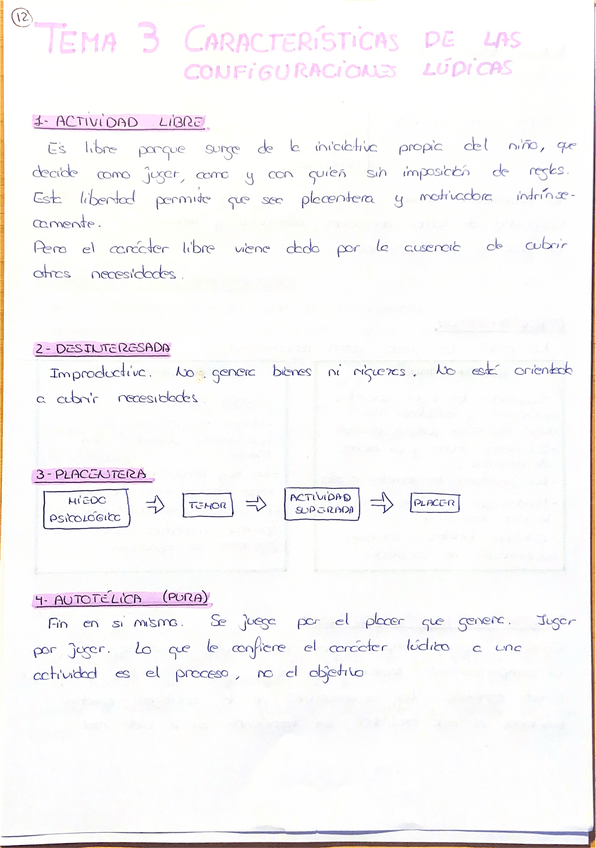 12
TEMA 3 CARACTERÍSTICAS DE LAS
CONFIGURACIONES LÚDICAS
1- ACTIVIDAD LIBRE
Es libre porque surge de la iniciativa propia del niño, que
decide como jugar, como y con quién sin imposición de reglas.
Esta libertad permite que sea placentera y motivadora intrínse-
camente.
Pero el carácter libre viene dado por la ausencia de cubrir
otras necesidades.
2- DESINTERESADA
Improductiva. No genera bienes ni riquezas. No está orientada
a cubrir necesidades
3- PLACENTERA
MIEDO
PSICOLÓGICO
⇒ TEMOR ⇒ ACTIVIDAD
SUPERADA
⇒ PLACER
4- AUTOTÉLICA (PURA)
Fin en si misma. Se juega por el placer que genera. Jugar
por jugar. Lo que le confiere el carácter lúdico a una
actividad es el proceso, no el objetivo